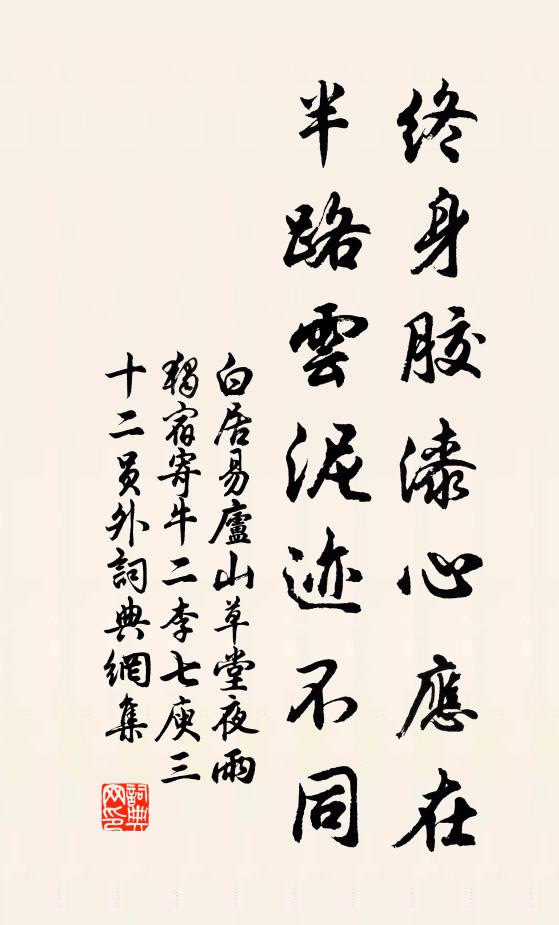 终身胶漆心應在
半路雲泥迹不同
白居易廬山草堂夜雨
獨宿寄牛二李七庾三
十二員外詞典網集
詞典
网印